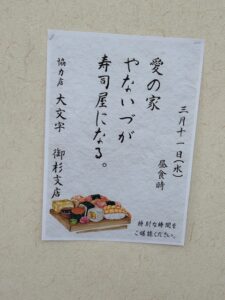 三月十一日(水)
昼食時
愛の家
やないづが
寿司屋になる。
協力店 大文字 御杉支店
特別な時間を
ご堪能ください。